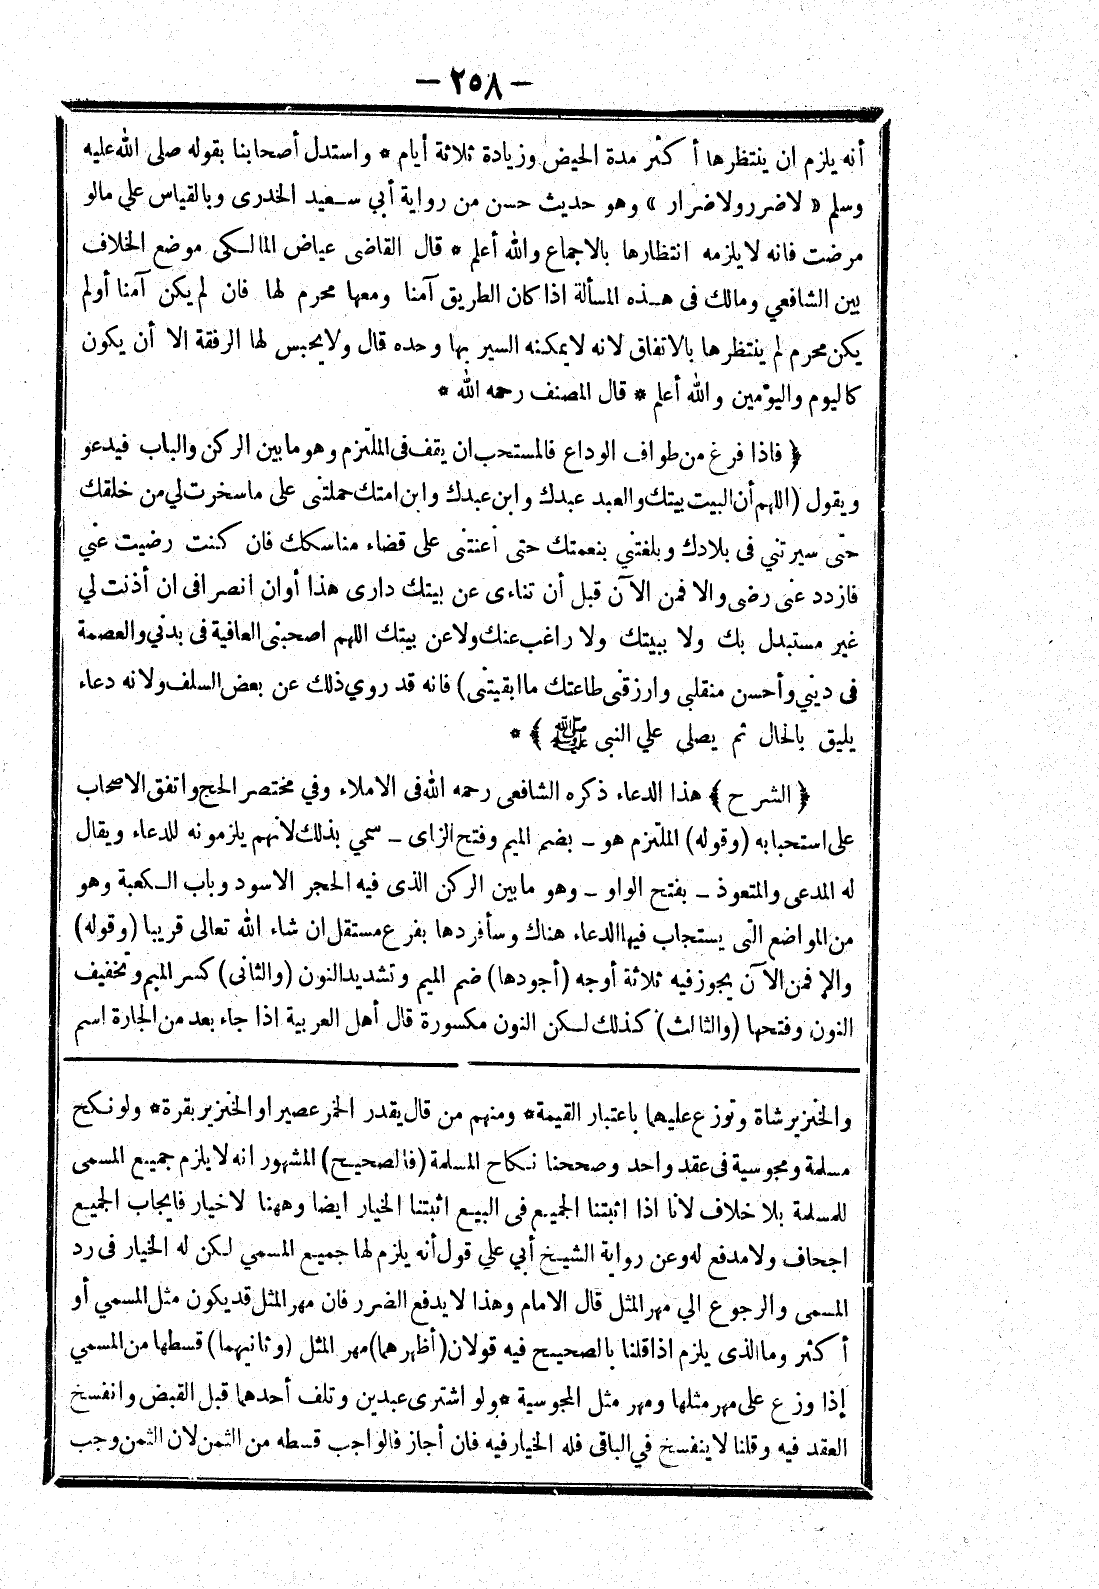 — ٢٥٨ —
أنه يلزم ان ينتظرها أكثر مدة الحيض وزيادة ثلاثة أيام * واستدل أصحابنا بقوله صلى الله عليه
وسلم « لاضرر ولاضرار » وهو حديث حسن من رواية أبي سعيد الخدرى وبالقياس علي مالو
مرضت فانه لايلزمه انتظارها بالاجماع والله أعلم * قال القاضى عياض المالكى موضع الخلاف
بين الشافعي ومالك فى هذه المسألة اذا كان الطريق آمنا ومعها محرم لها فان لم يكن آمنا أولم
يكن محرم لم ينتظرها بالاتفاق لانه لايمكنه السير بها وحده قال ولايحبس لها الرفقة الا أن يكون
كاليوم واليومين والله أعلم * قال المصنف رحمه الله *
﴿ فاذا فرغ من طواف الوداع فالمستحب ان يقف فى الملتزم وهو مابين الركن والباب فيدعو
ويقول (اللهم أن البيت بيتك والعبد عبدك وابن عبدك وابن امتك حملتنى على ماسخرت لي من خلقك
حتى سيرتني فى بلادك وبلغتني بنعمتك حتى أعنتنى على قضاء مناسكك فان كنت رضيت عني
فازدد عنى رضى والا فمن الآن قبل أن تناءى عن بيتك دارى هذا أوان انصرافى ان أذنت لي
غير مستبدل بك ولا ببيتك ولا راغب عنك ولاعن بيتك اللهم اصحبنى العافية فى بدني والعصمة
فى ديني وأحسن منقلبى وارزقنى طاعتك ماابقيتنى) فانه قد روي ذلك عن بعض السلف ولانه دعاء
يليق بالحال ثم يصلى علي النبى ﷺ ﴾ *
﴿ الشرح ﴾ هذا الدعاء ذكره الشافعى رحمه الله فى الاملاء وفي مختصر الحج واتفق الاصحاب
على استحبابه (وقوله) الملتزم هو ـ بضم الميم وفتح الزاى ـ سمي بذلك لأنهم يلزمونه للدعاء ويقال
له المدعى والمتعوذ ـ بفتح الواو ـ وهو مابين الركن الذى فيه الحجر الاسود وباب الكعبة وهو
من المواضع التى يستجاب فيها الدعاء هناك وسأفردها بفرع مستقل ان شاء الله تعالى قريبا (وقوله)
والإ فمن الآن يجوز فيه ثلاثة أوجه (أجودها) ضم الميم وتشديد النون (والثانى) كسر الميم وتخفيف
النون وفتحها (والثالث) كذلك لكن النون مكسورة قال أهل العربية اذا جاء بعد من الجارة اسم
والخنزير شاة وتوزع عليهما باعتبار القيمة* ومنهم من قال يقدر الخمر عصيرا والخنزير بقرة* ولو نكح
مسلمة ومجوسية فى عقد واحد وصححنا نكاح المسلمة (فالصحيح) المشهور انه لا يلزم جميع المسمى
للمسلمة بلا خلاف لأنا اذا اثبتنا الجميع فى البيع اثبتنا الخيار ايضا وههنا لاخيار فايجاب الجميع
اجحاف ولامدفع له وعن رواية الشيخ أبي علي قول أنه يلزم لها جميع المسمي لكن له الخيار فى رد
المسمى والرجوع الي مهر المثل قال الامام وهذا لا يدفع الضرر فان مهر المثل قد يكون مثل المسمي أو
أكثر وما الذى يلزم اذا قلنا بالصحيح فيه قولان (أظهرهما) مهر المثل (وثانيهما) قسطها من المسمي
إذا وزع على مهر مثلها ومهر مثل المجوسية *ولو اشترى عبدين وتلف أحدهما قبل القبض وانفسخ
العقد فيه وقلنا لا ينفسخ في الباقى فله الخيار فيه فان أجاز فالواجب قسطه من الثمن لان الثمن وجب